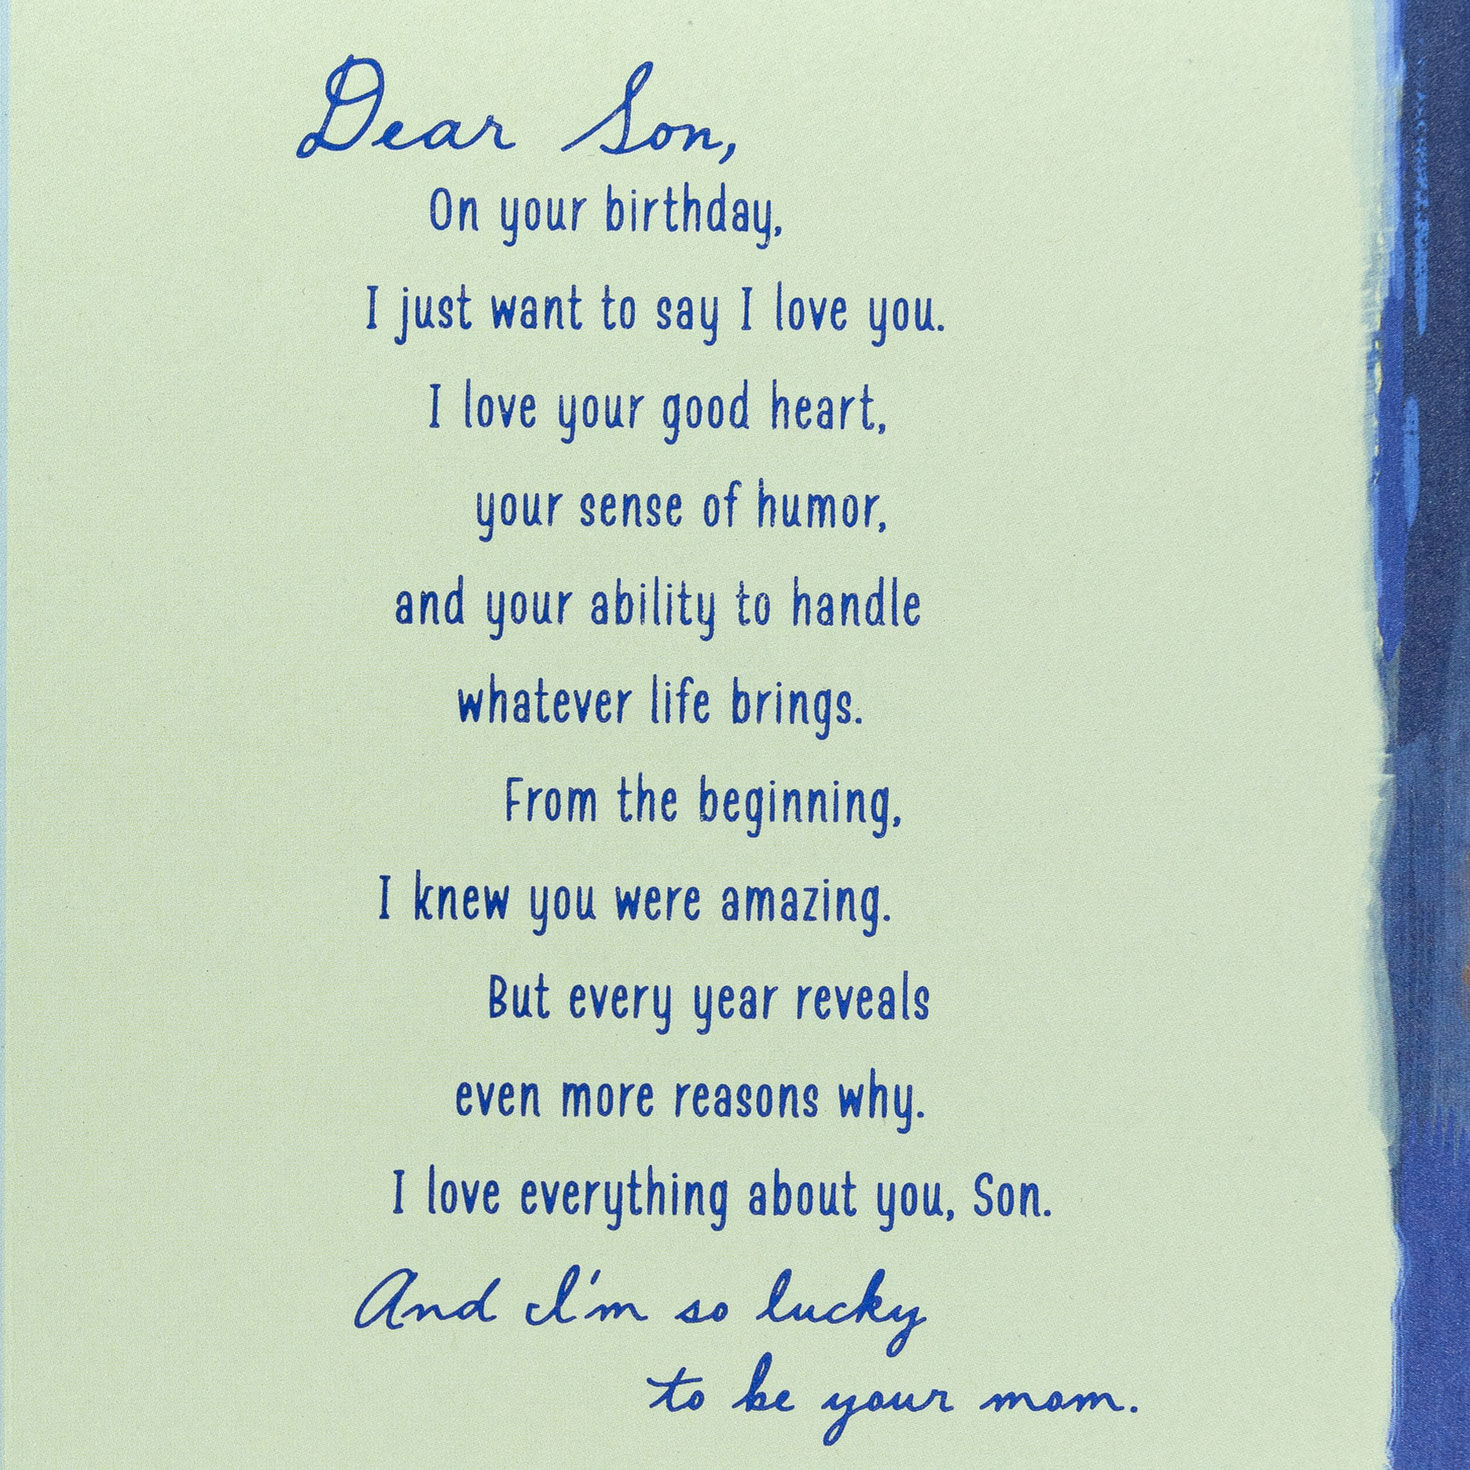 Dear Son,
On your birthday,
I just want to say I love you.
I love your good heart,
your sense of humor,
and your ability to handle
whatever life brings.
From the beginning,
I knew you were amazing.
But every year reveals
even more reasons why.
I love everything about you, Son.
And I'm so lucky
to be your mom.